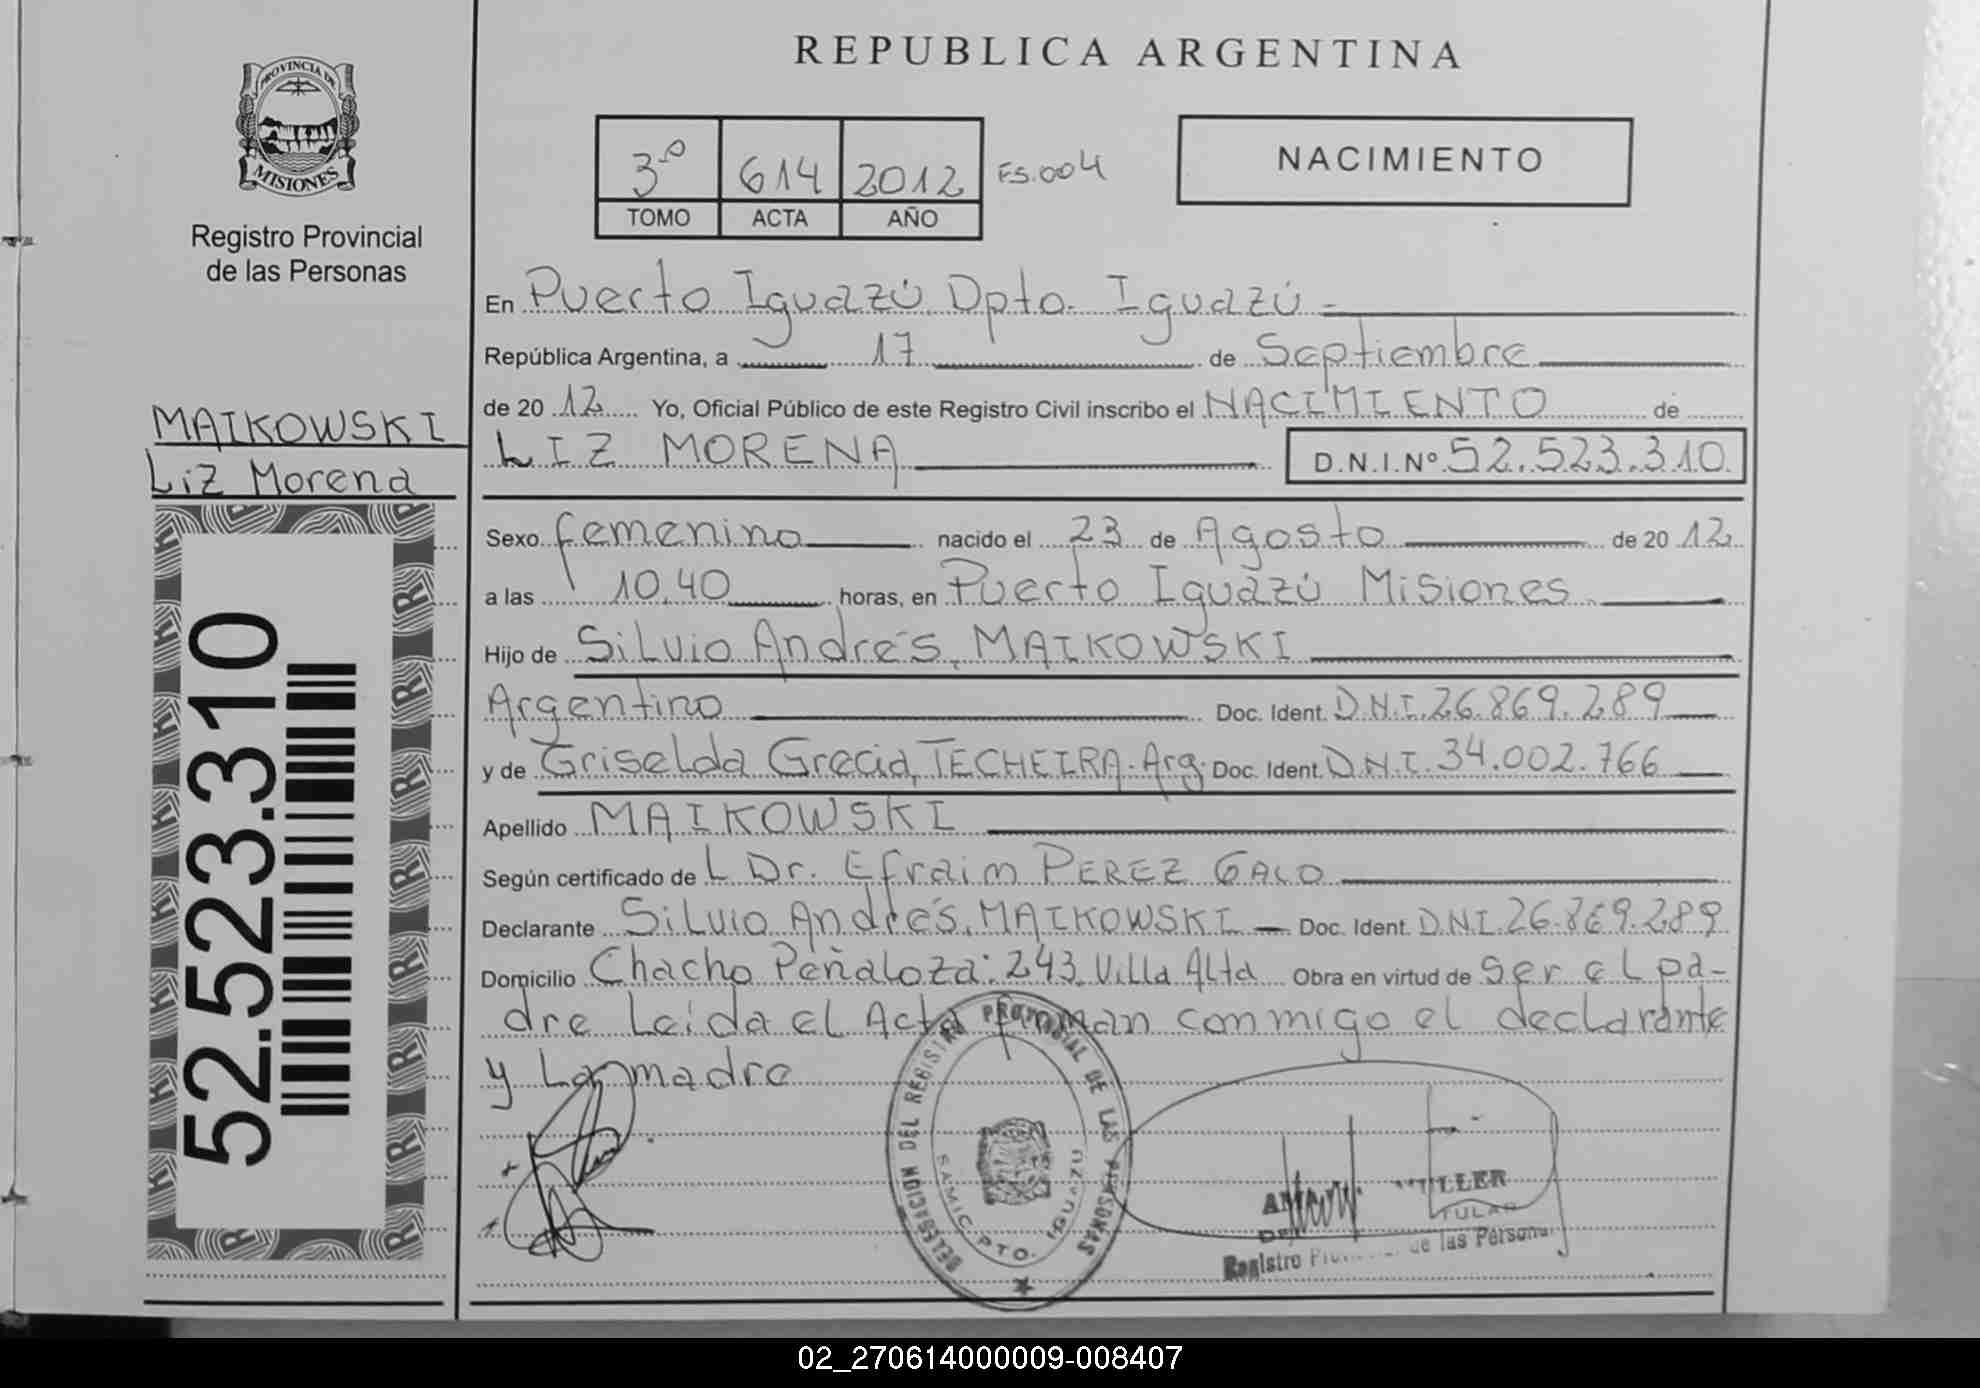 REPUBLICA ARGENTINA
PROVINCIA DE
MISIONES
Registro Provincial
de las Personas
3º 614 2012 FS.004
TOMO ACTA AÑO
NACIMIENTO
En Puerto Iguazú Dpto. Iguazú =
República Argentina, a 17 de Septiembre
de 2012 Yo, Oficial Público de este Registro Civil inscribo el NACIMIENTO de
LIZ MORENA D.N.I.Nº 52.523.310
MAIKOWSKI
Liz Morena
52.523.310
Sexo femenino nacido el 23 de Agosto de 2012
a las 10.40 horas, en Puerto Iguazú Misiones
Hijo de Silvio Andrés, MAIKOWSKI
Argentino Doc. Ident. D.N.I. 26.869.289
y de Griselda Grecia, TECHEIRA. Arg. Doc. Ident. D.N.I. 34.002.766
Apellido MAIKOWSKI
Según certificado de L Dr. Efraim PEREZ GALO
Declarante Silvio Andrés, MAIKOWSKI Doc. Ident. DNI. 26.869.289
Domicilio Chacho Peñaloza: 243 Villa Alta Obra en virtud de ser el pa-
dre Leída el Acta firman conmigo el declarante
y La madre
DELEGACION DEL REGISTRO PROVINCIAL DE LAS PERSONAS
SAMIC PTO. IGUAZU
Registro de las Personas
02_270614000009-008407